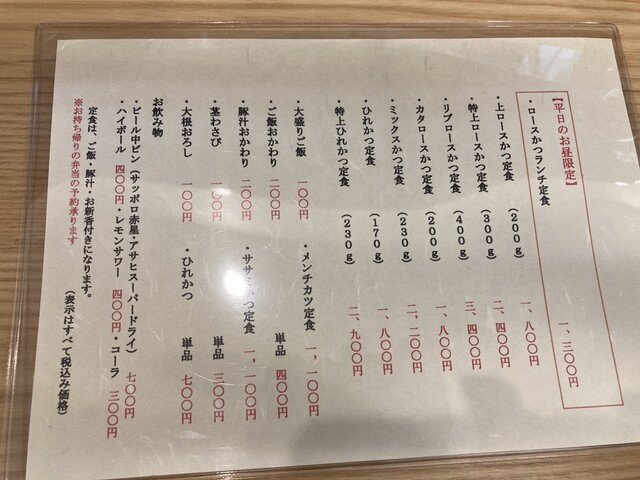 【平日のお昼限定】
・ロースかつランチ定食 一、三〇〇円
・上ロースかつ定食 (200g) 一、八〇〇円
・特上ロースかつ定食 (300g) 二、四〇〇円
・リブロースかつ定食 (400g) 三、四〇〇円
・カタロースかつ定食 (200g) 一、八〇〇円
・ミックスかつ定食 (230g) 二、二〇〇円
・ひれかつ定食 (170g) 一、八〇〇円
・特上ひれかつ定食 (230g) 二、九〇〇円
・大盛りご飯 一〇〇円 ・メンチカツ定食 一、一〇〇円
・ご飯おかわり 二〇〇円 単品 四〇〇円
・豚汁おかわり 二〇〇円 ・ササミかつ定食 一、一〇〇円
・茎わさび 一〇〇円 単品 三〇〇円
・大根おろし 一〇〇円 ・ひれかつ 単品 七〇〇円
お飲み物
・ビール中ビン(サッポロ赤星・アサヒスーパードライ) 七〇〇円
・ハイボール 四〇〇円・レモンサワー 四〇〇円・コーラ 三〇〇円
定食は、ご飯・豚汁・お新香付きになります。
※お持ち帰りの弁当の予約承ります
(表示はすべて税込み価格)